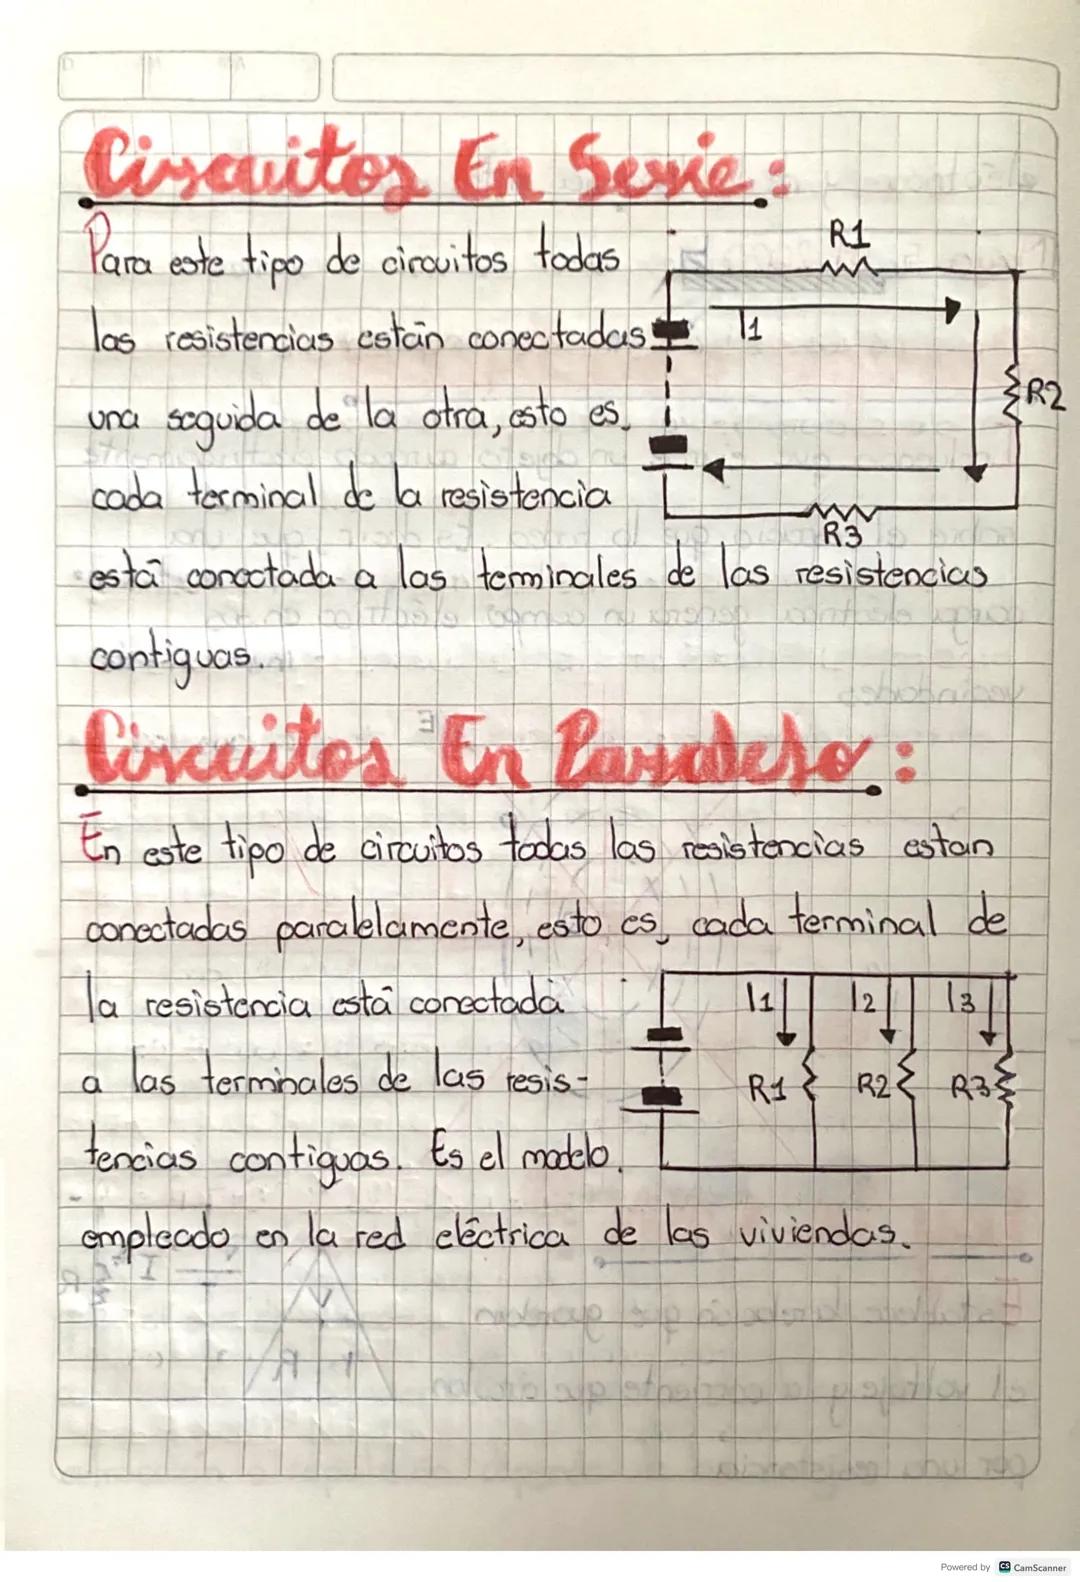 Circuitos En Serie:
Para este tipo de circuitos todas
las resistencias están conectadas
una seguida de la otra, esto es,
cada terminal de la resistencia
está conectada a las terminales de las resistencias
contiguas.
R1
I1
R2
R3
Circuitos En Paralelo:
En este tipo de circuitos todas las resistencias estan
conectadas paralelamente, esto es, cada terminal de
la resistencia está conectada
a las terminales de las resis-
tencias contiguas. Es el modelo
empleado en la red eléctrica de las viviendas.
I1 I2 I3
R1 R2 R3
Powered by CS CamScanner